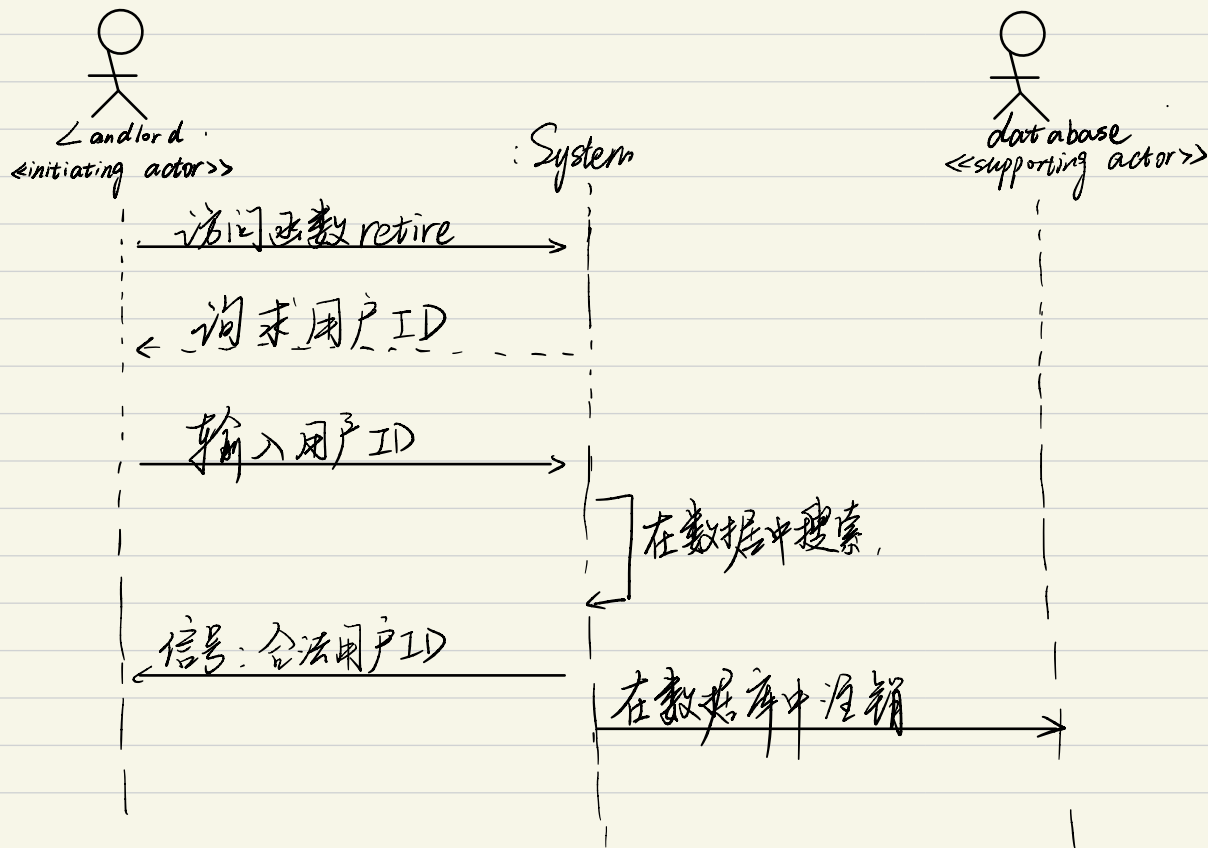 Landlord
<<initiating actor>>
: System
database
<<supporting actor>>
访问函数retire
询求用户ID
输入用户ID
在数据中搜索
信号:合法用户ID
在数据库中注销